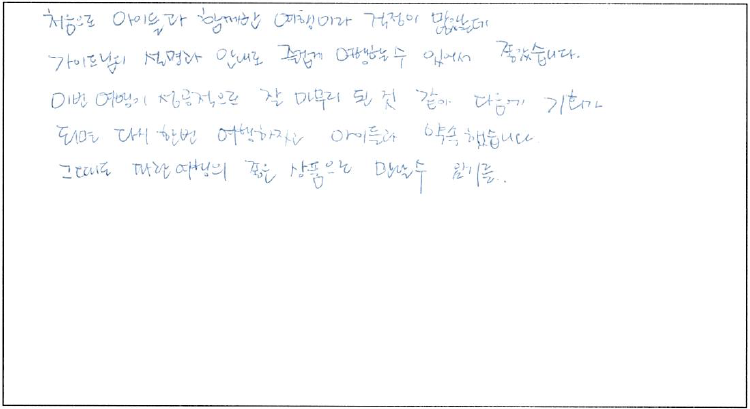 처음으로 아이들과 함께한 여행이라 걱정이 많았는데
가이드님의 설명과 안내로 즐겁게 여행할 수 있어서 좋았습니다.
이번 여행이 성공적으로 잘 마무리 된 것 같아 다음에 기회가
되면 다시 한번 여행하자고 아이들과 약속했습니다
그때도 파란여행의 좋은 상품으로 만날수 있기를..